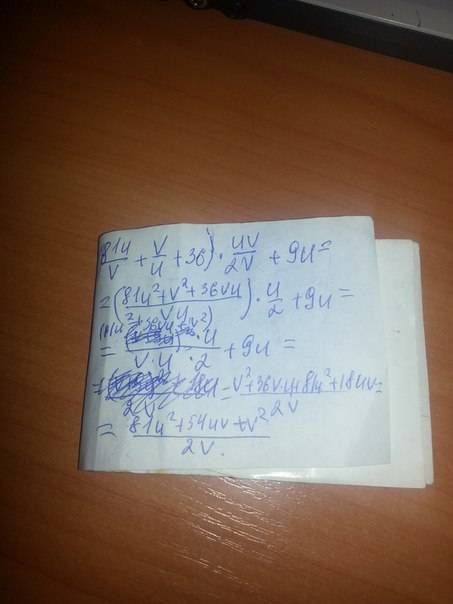 81u/v + v/u + 36) · uv/2v + 9u =
= (81u² + v² + 36vu / vu) · u/2 + 9u =
= (81u² + 36vu + v²) · u / v · u · 2 + 9u =
= v² + 36v·u + 81u² + 18uv / 2v =
= 81u² + 54uv + v² / 2v.